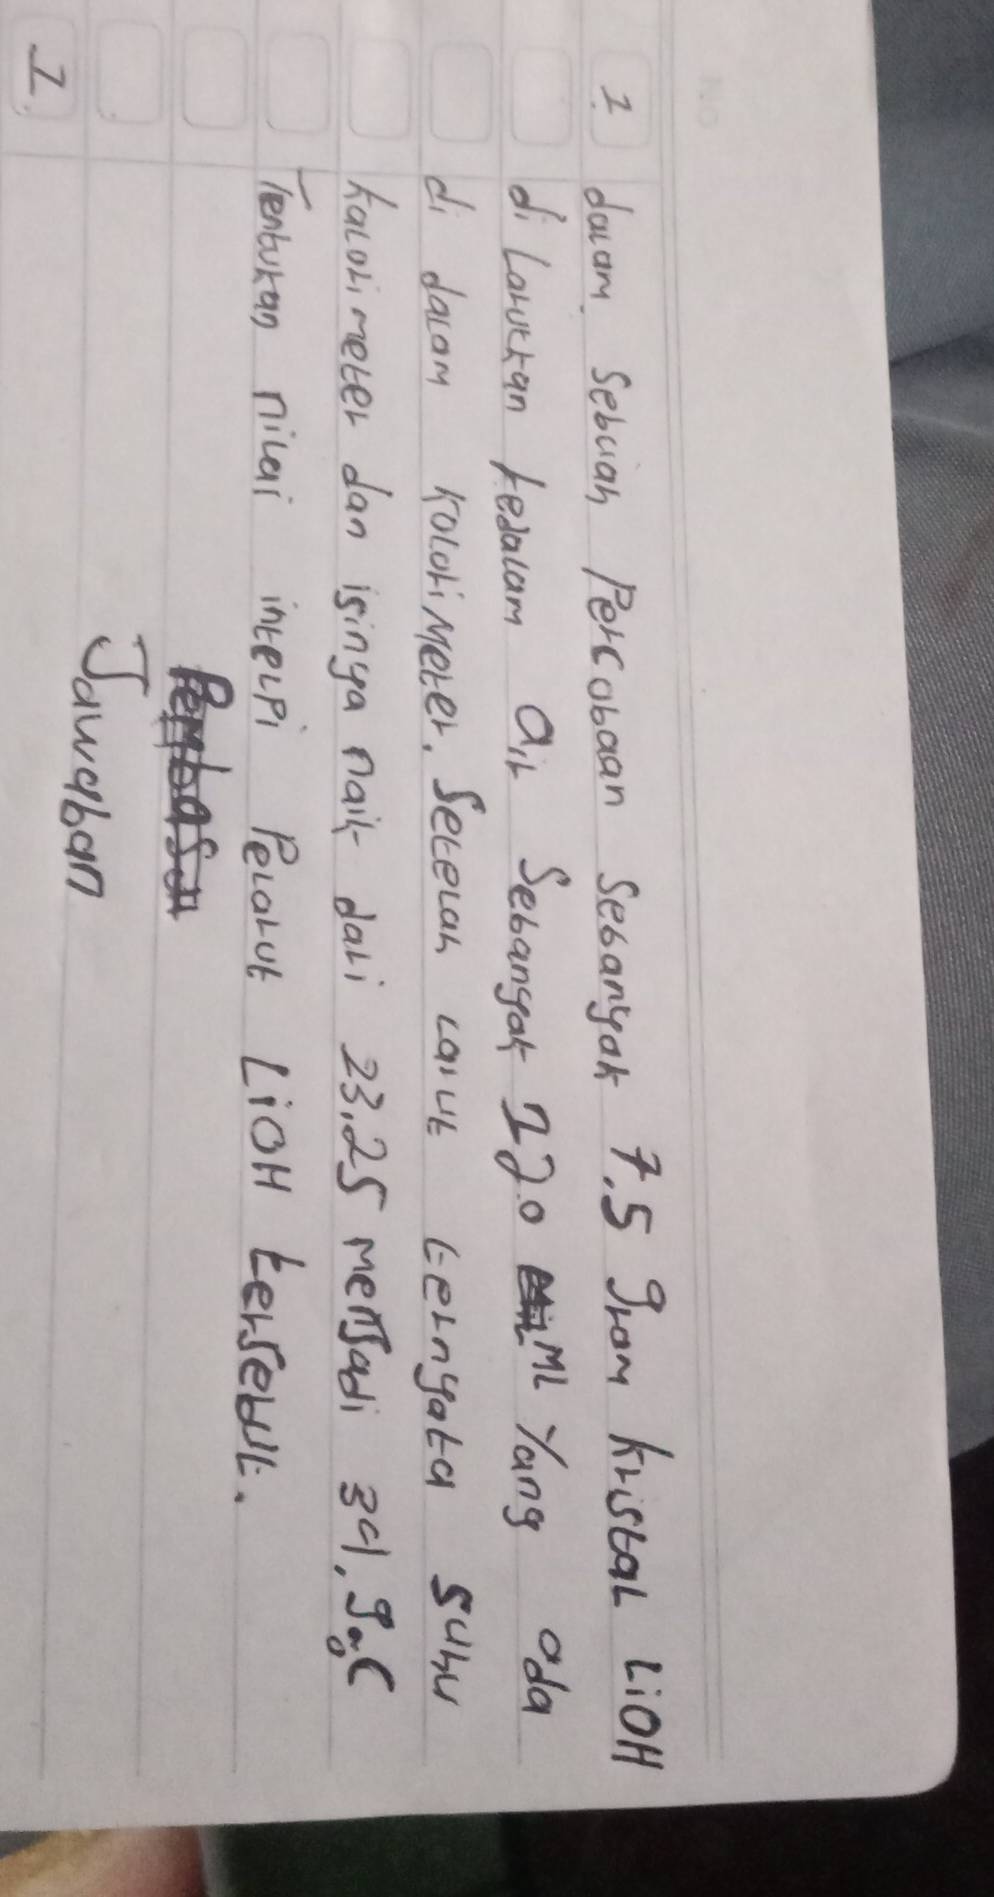 1 dalam sebuah Percobaan sebanyak 7,5 gram kristal LiOH
di Larutkan kedalam air sebanyak 120 ML Yang ada
di dalam kolorimeter. Setelah larut ternyata suhu
kalorimeter dan isinya naik dari 23,25 menjadi 34,9 °C
Tentukan nilai intelpi Pelarut LiOH tersebut.
Jawaban
1.